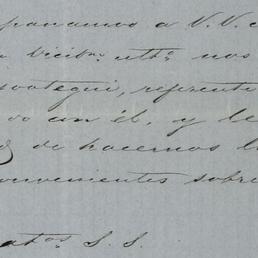 pasamos a V.V.
Dicibre. ulto. nos
sotegui, referente
do con él, y le
de hacernos l
convenientes sobre
atos. S. S.